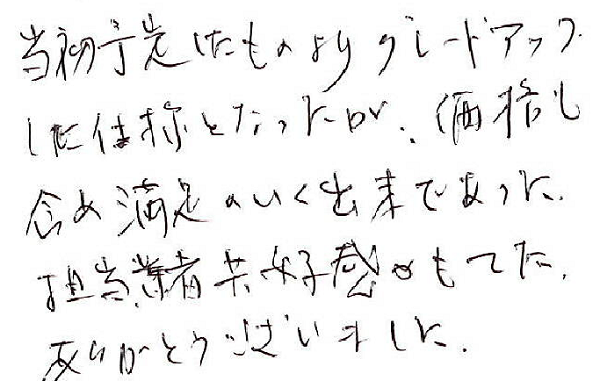 当初予定したものよりグレードアップ
した仕様となったが、価格も
含め満足のいく出来であった。
担当業者共好感がもてた。
ありがとうございました。